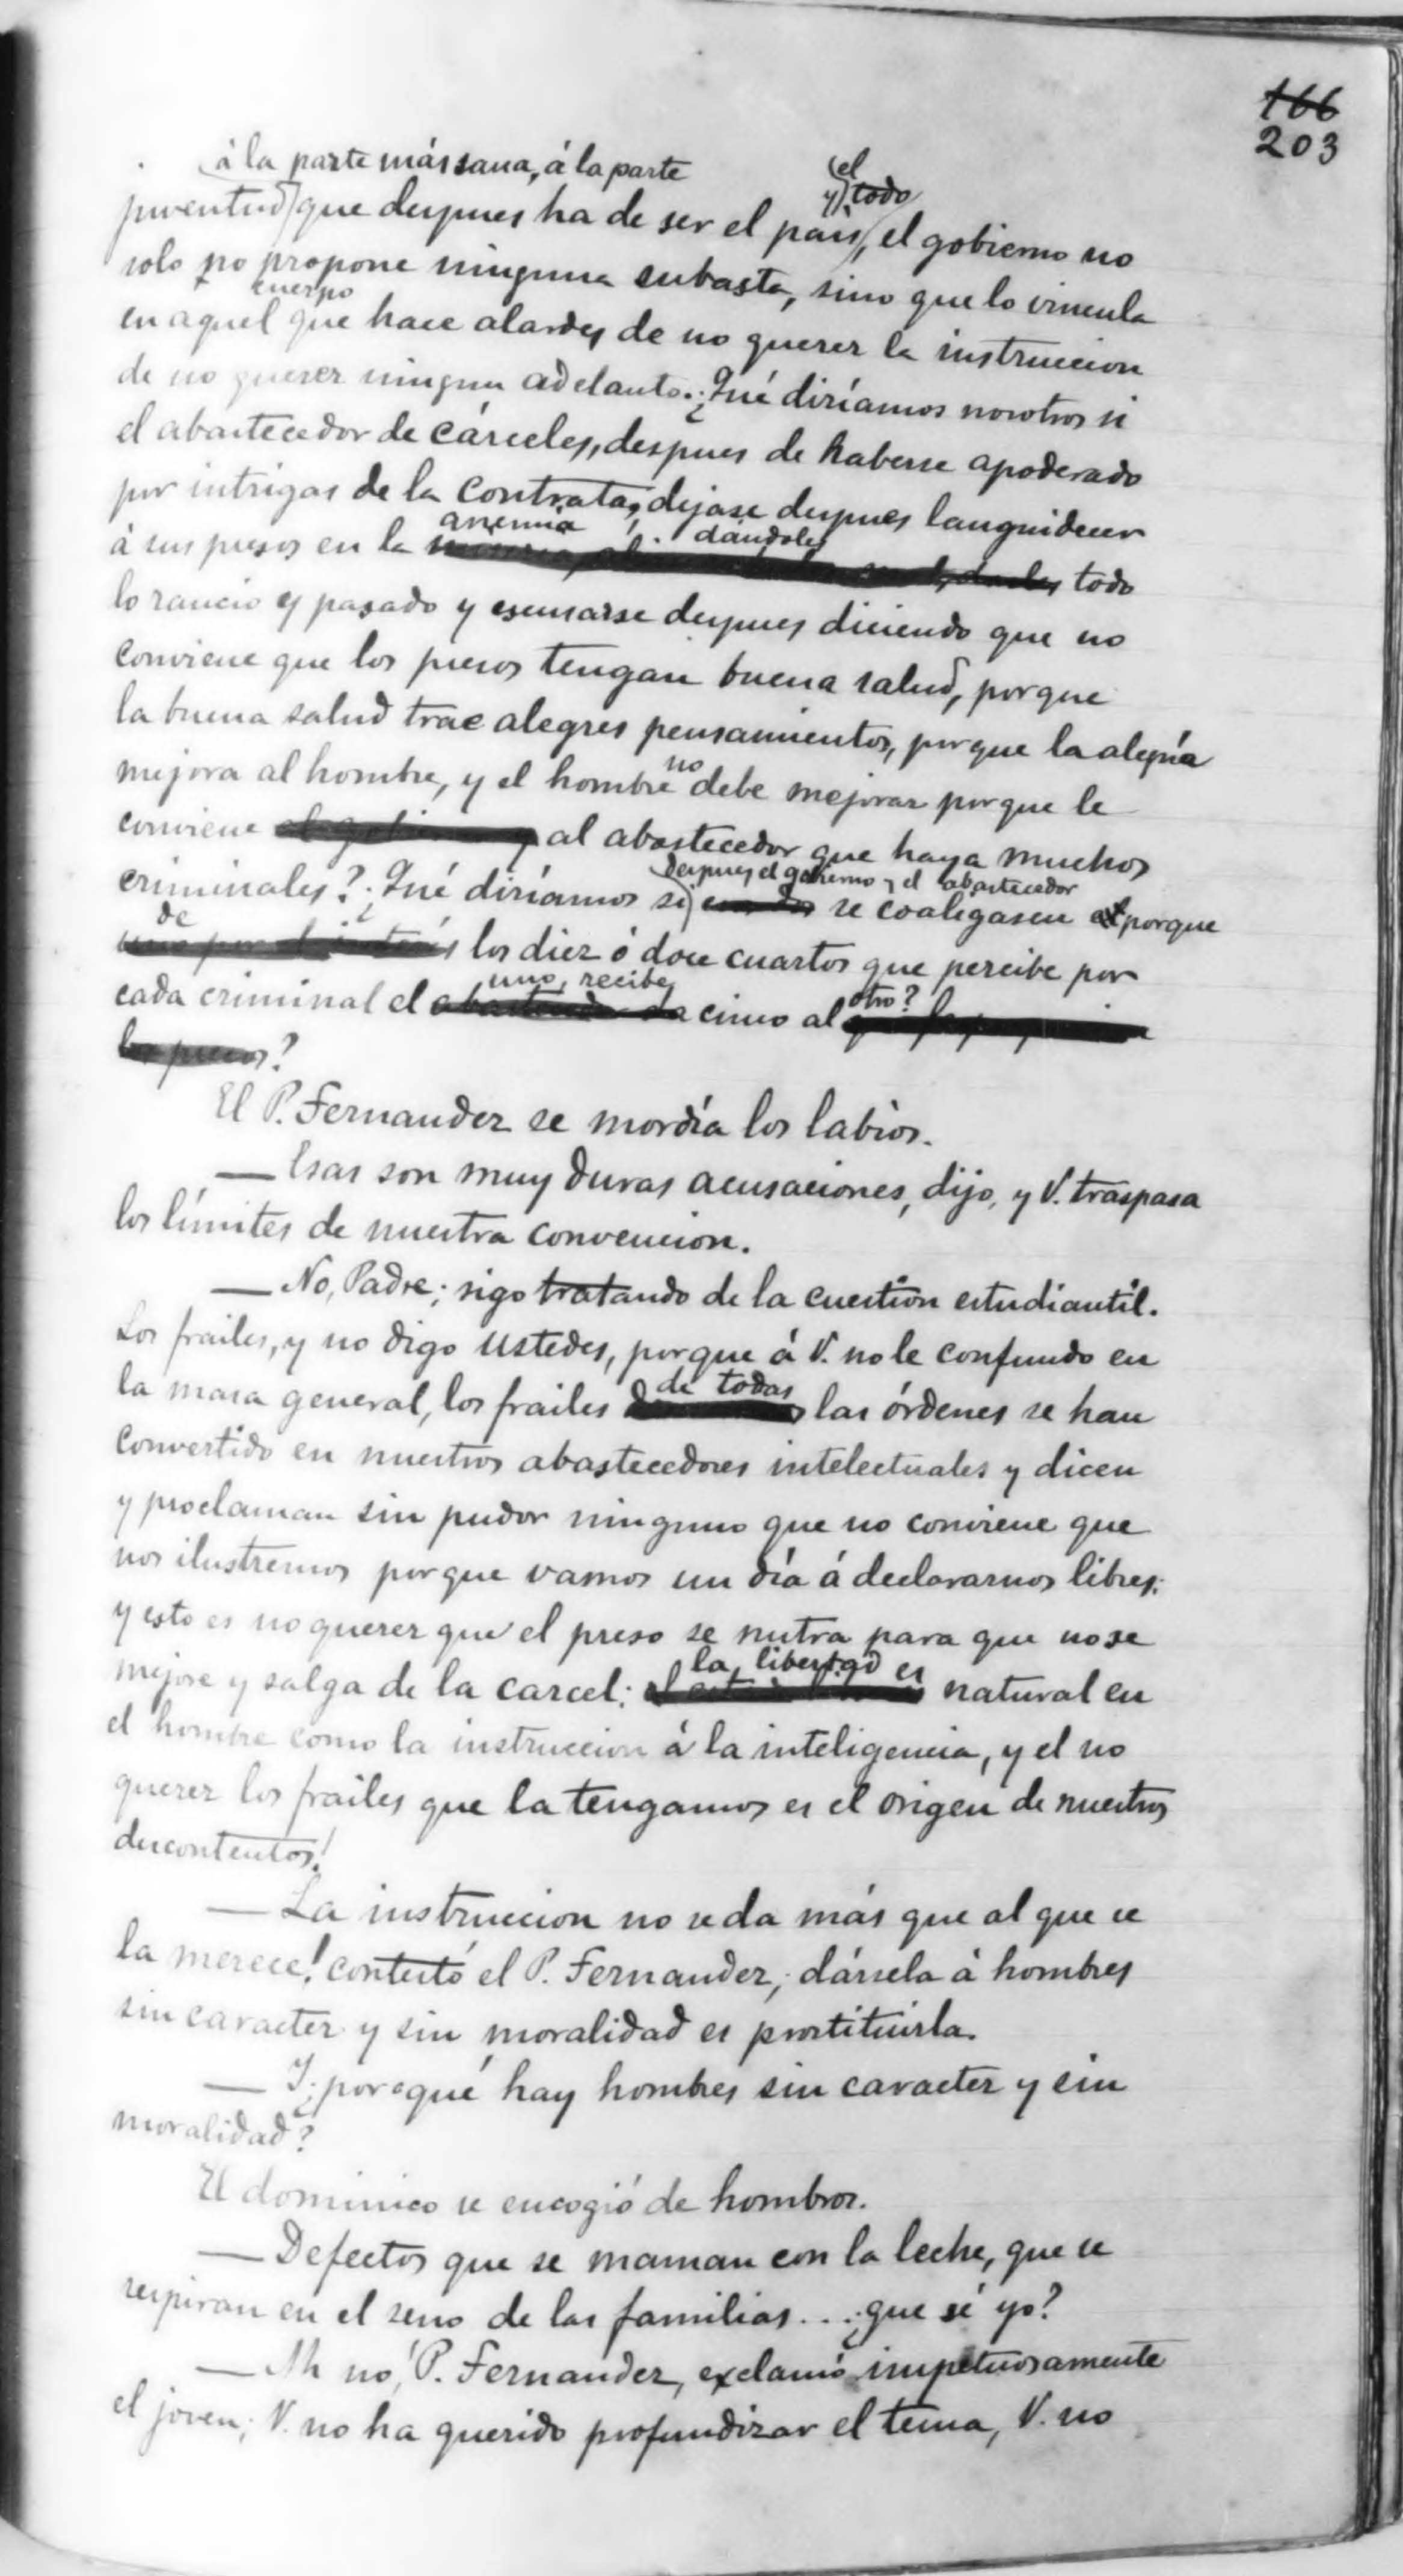 166
203
á la parte más sana, á la parte
(el
y) todo
juventud) que despues ha de ser el pais, el gobierno no
solo no propone ninguna subasta, sino que lo vincula
cuerpo
en aquel que hace alardes de no querer la instruccion
de no querer ningun adelanto. ¿Qué diríamos nosotros si
el abastecedor de cárceles, despues de haberse apoderado
por intrigas de la contrata, dejase despues languidecer
anemia, dándoles
á sus presos en la todo
lo rancio y pasado y escusarse despues diciendo que no
conviene que los presos tengan buena salud, porque
la buena salud trae alegres pensamientos, porque la alegría
no
mejora al hombre, y el hombre debe mejorar porque le
conviene al abastecedor que haya muchos
despues el gobierno y el abastecedor
criminales? ¿Qué diríamos si) se coaligasen porque
de
los diez ó doce cuartos que percibe por
uno, recibe otro?
cada criminal el cinco al
los presos?
El P. Fernandez se mordía los labios.
— Esas son muy duras acusaciones, dijo, y V. traspasa
los límites de nuestra convencion.
— No, Padre; sigo tratando de la cuestion estudiantil.
Los frailes, y no digo Ustedes, porque á V. no le confundo en
de todas
la masa general, los frailes las órdenes se han
convertido en nuestros abastecedores intelectuales y dicen
y proclaman sin pudor ninguno que no conviene que
nos ilustremos porque vamos un día á declararnos libres;
y esto es no querer que el preso se nutra para que no se
la libertad es
mejore y salga de la carcel; natural en
el hombre como la instruccion á la inteligencia, y el no
querer los frailes que la tengamos es el origen de nuestros
descontentos!
— La instruccion no se da más que al que se
la merece! contestó el P. Fernandez; dársela á hombres
sin caracter y sin moralidad es prostituirla.
— Y ¿por qué hay hombres sin caracter y sin
moralidad?
El dominico se encogió de hombros.
— Defectos que se maman con la leche, que se
respiran en el seno de las familias... ¿que sé yo?
— Ah no, P. Fernandez, exclamó impetuosamente
el joven; V. no ha querido profundizar el tema, V. no